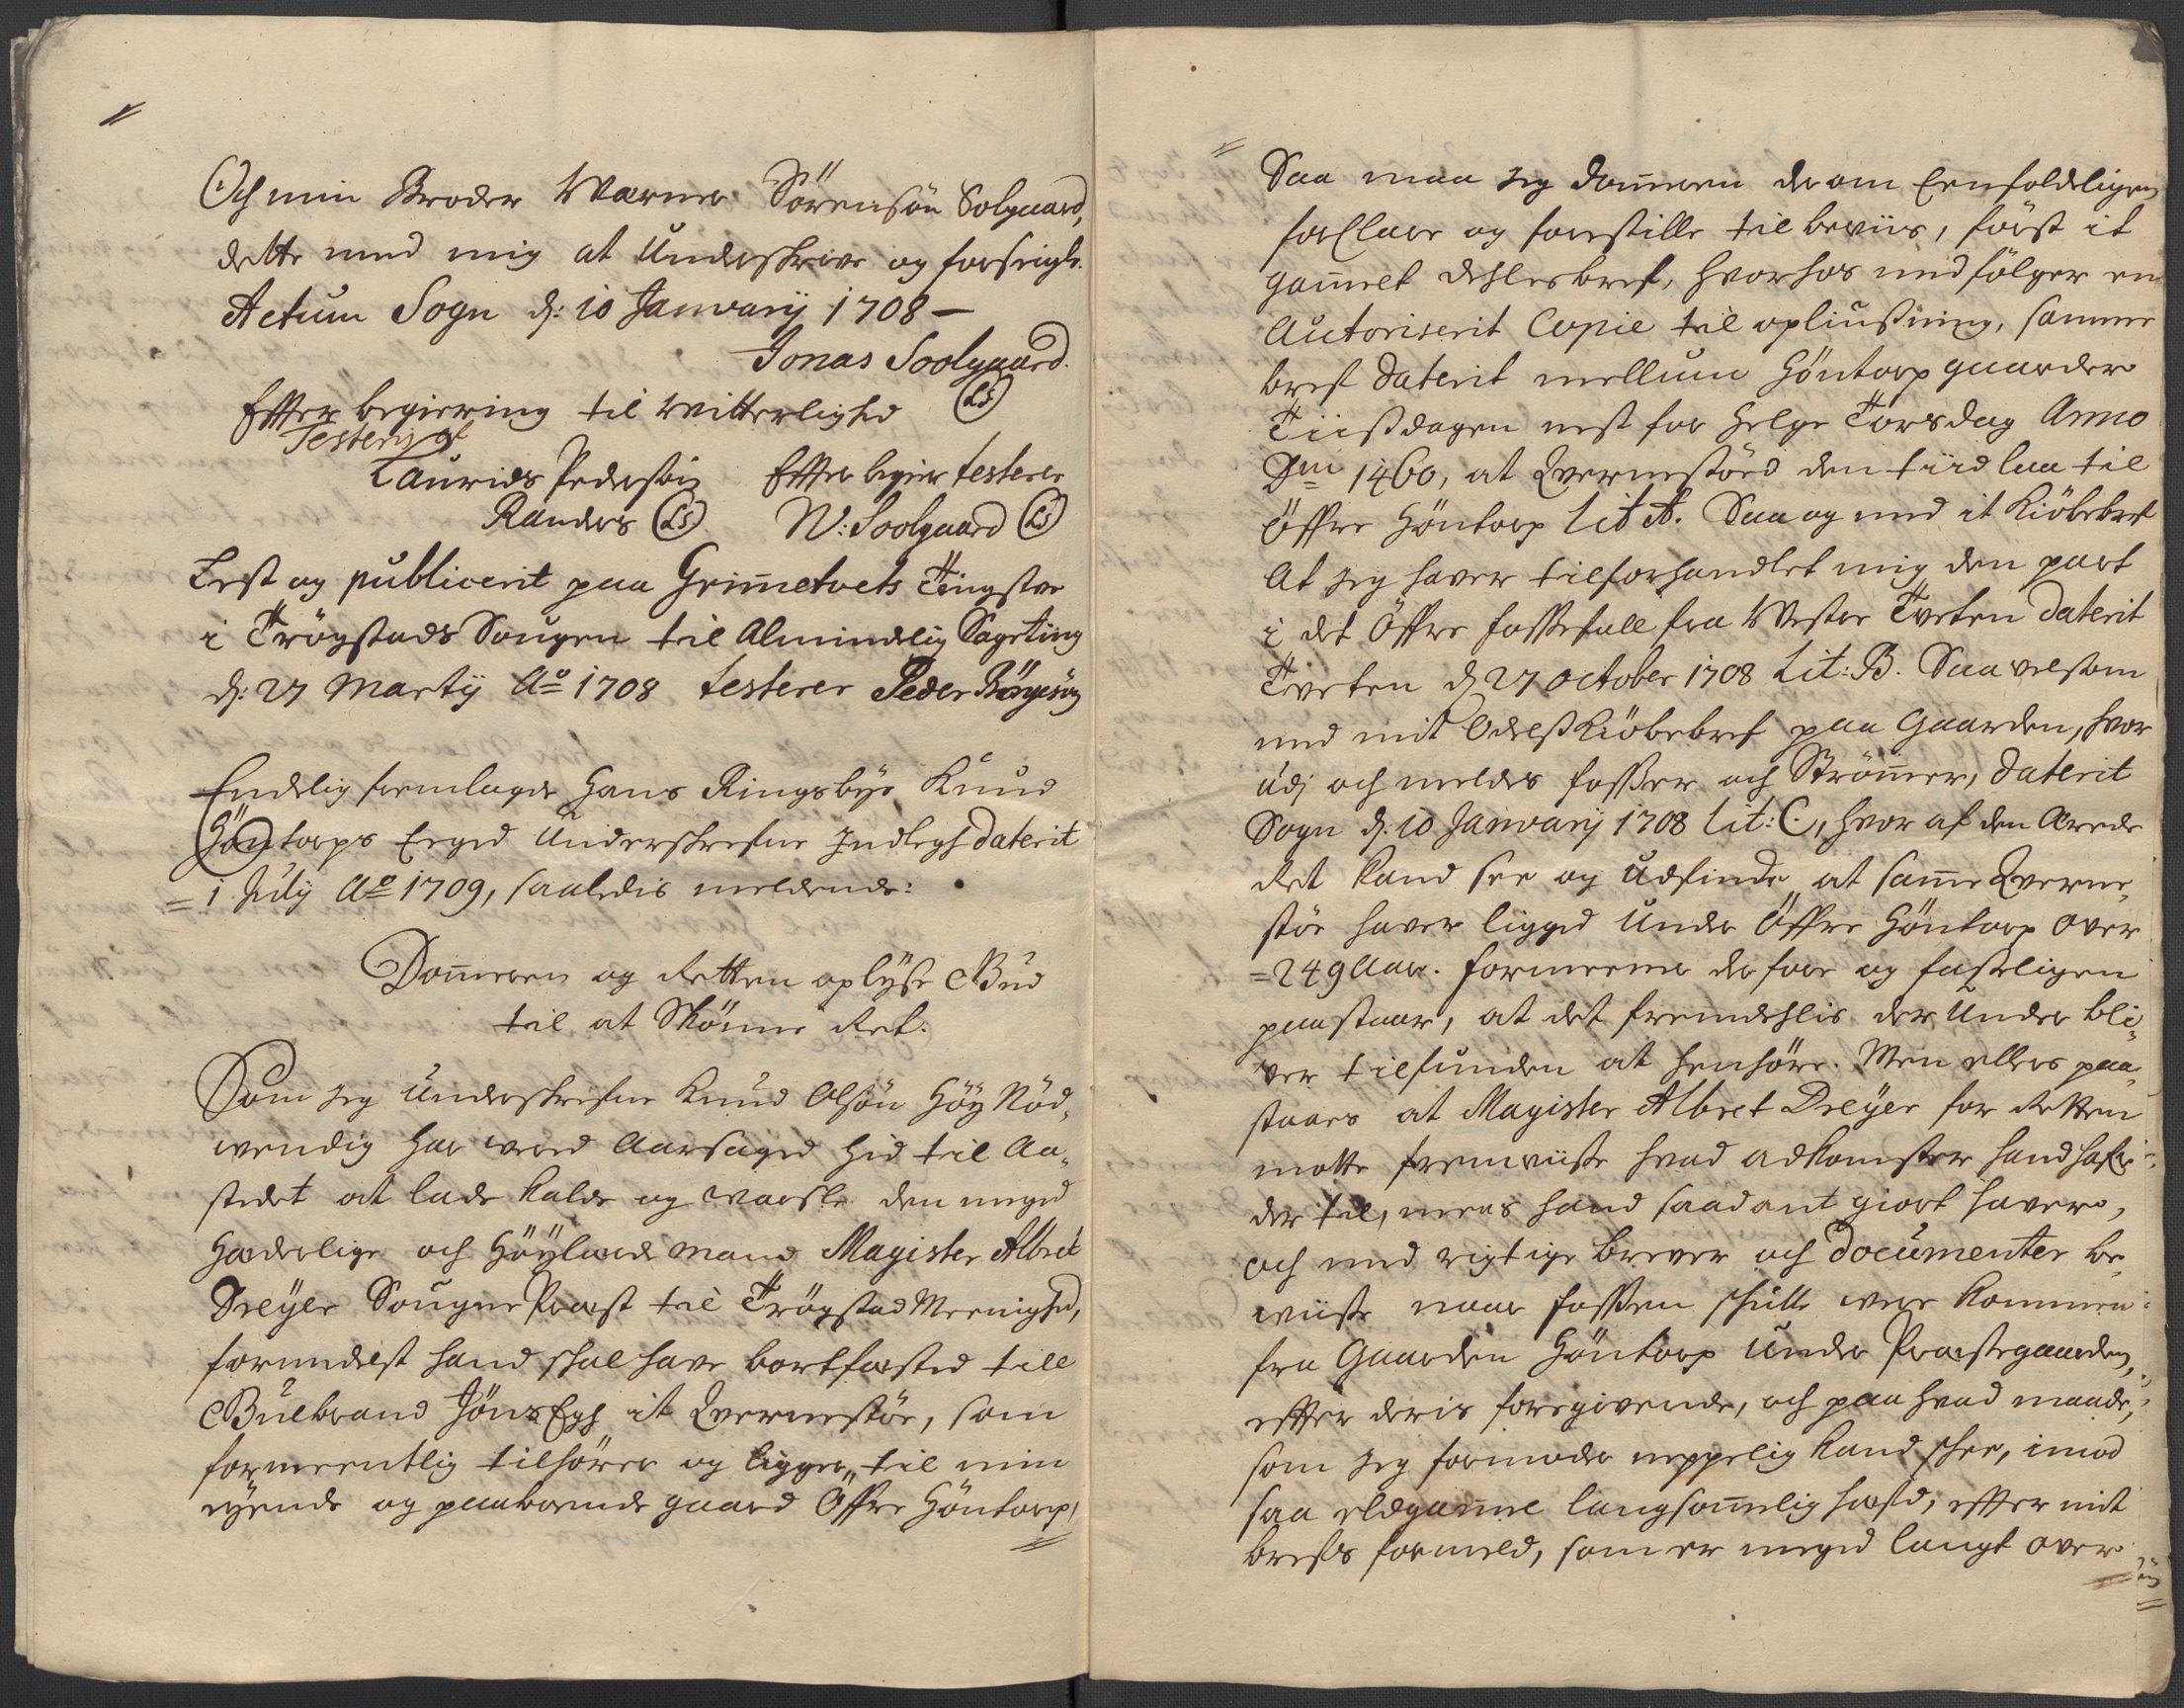 Och min Broder Warner Sörensön Solgaard,
dette med mig at Underskrive og forseigle.
Actum Sogn d: 10 Januarij 1708 –
Jonas Soolgaard.
Effter begiering til Witterlighed (LS)
Testeris af
Laurids Pedersön Effter begier testerer
Randers (LS) N: Soolgaard (LS)
Lest og publicerit paa Grimetvets Tingstue
i Trögstads Sougen til Almindelig Sageting
d: 27 Martij Ao 1708 testerer Peder Börgesön
Endelig fremlagde Hans Ringsbye Knud
Höntorps Eeged Underskrefne Indlegh daterit
= 1 Julij Ao 1709, saaledis meldende:
Dommeren og Retten oplyse Bud
til at Skönne Ret.
Som Jeg Underskrefne Knud Olsön Höy Nöd„
wendig har wered Aarsaged hid til Aa„
stedet at lade Kalde og warsle den meget
Hæderlige och Höylærde Mand Magister Albret
Dreyer Sougne Præst til Trögstad Meenighed,
formedelst hand skal have bortfæsted till
Gulbrand Jöns Egh it Qvernestöe, som
formeentlig tilhörer og ligger„ til min
eyende og paaboende gaard Öffre Höntorp,
Saa maa Jeg Dommeren derom Eenfoldeligen
forclare og forestille til beviis, först it
gammelt dehlesbref, hvorhos medfölger en
Autoriserit Copie til opliusning, samme
bref daterit mellum Höntorp gaarder
Tiisdagen nest for Helge Torsdag Anno
Dni 1460, at Qvernestöed den tiid laa til
Öffre Höntorp Lit A. Saa og med it Kiöbebref
At Jeg haver tilforhandlet mig den part
i det Öffre fossefall fra Wester Tveten daterit
Tveten d 27 October 1708 Lit: B. Saavelsom
med mit OdelsKiöbebref paa Gaarden, hvor
udj och meldes fosser och Strömmer, daterit
Sogn d: 10 Januarij 1708 Lit: C, hvor af den Ærede
Ret kand see og Udfinde at samme Qverne„
stöe haver ligged Under Öffre Höntorp over
= 249 Aar. formeener derfore og fasteligen
paastaar, at det fremdehlis der Under bli„
ver tilfunden at henhöre. Men ellers paa„
staaes at Magister Albret Dreyer for Retten
motte fremviise hvad adkomster hand hafver
der til, mens hand saadant giort haver,
och med rigtige brever och Documenter be„
wiise naar fossen skulle were kommen
fra Gaarden Höntorp under Præstegaarden,
effter deris foregivende, och paa hvad maade,
som Jeg formoder neppelig kand skee, imod
saa eldgammel langsommelig hæfd, effter mit
brefs formeld, som er meget langt over